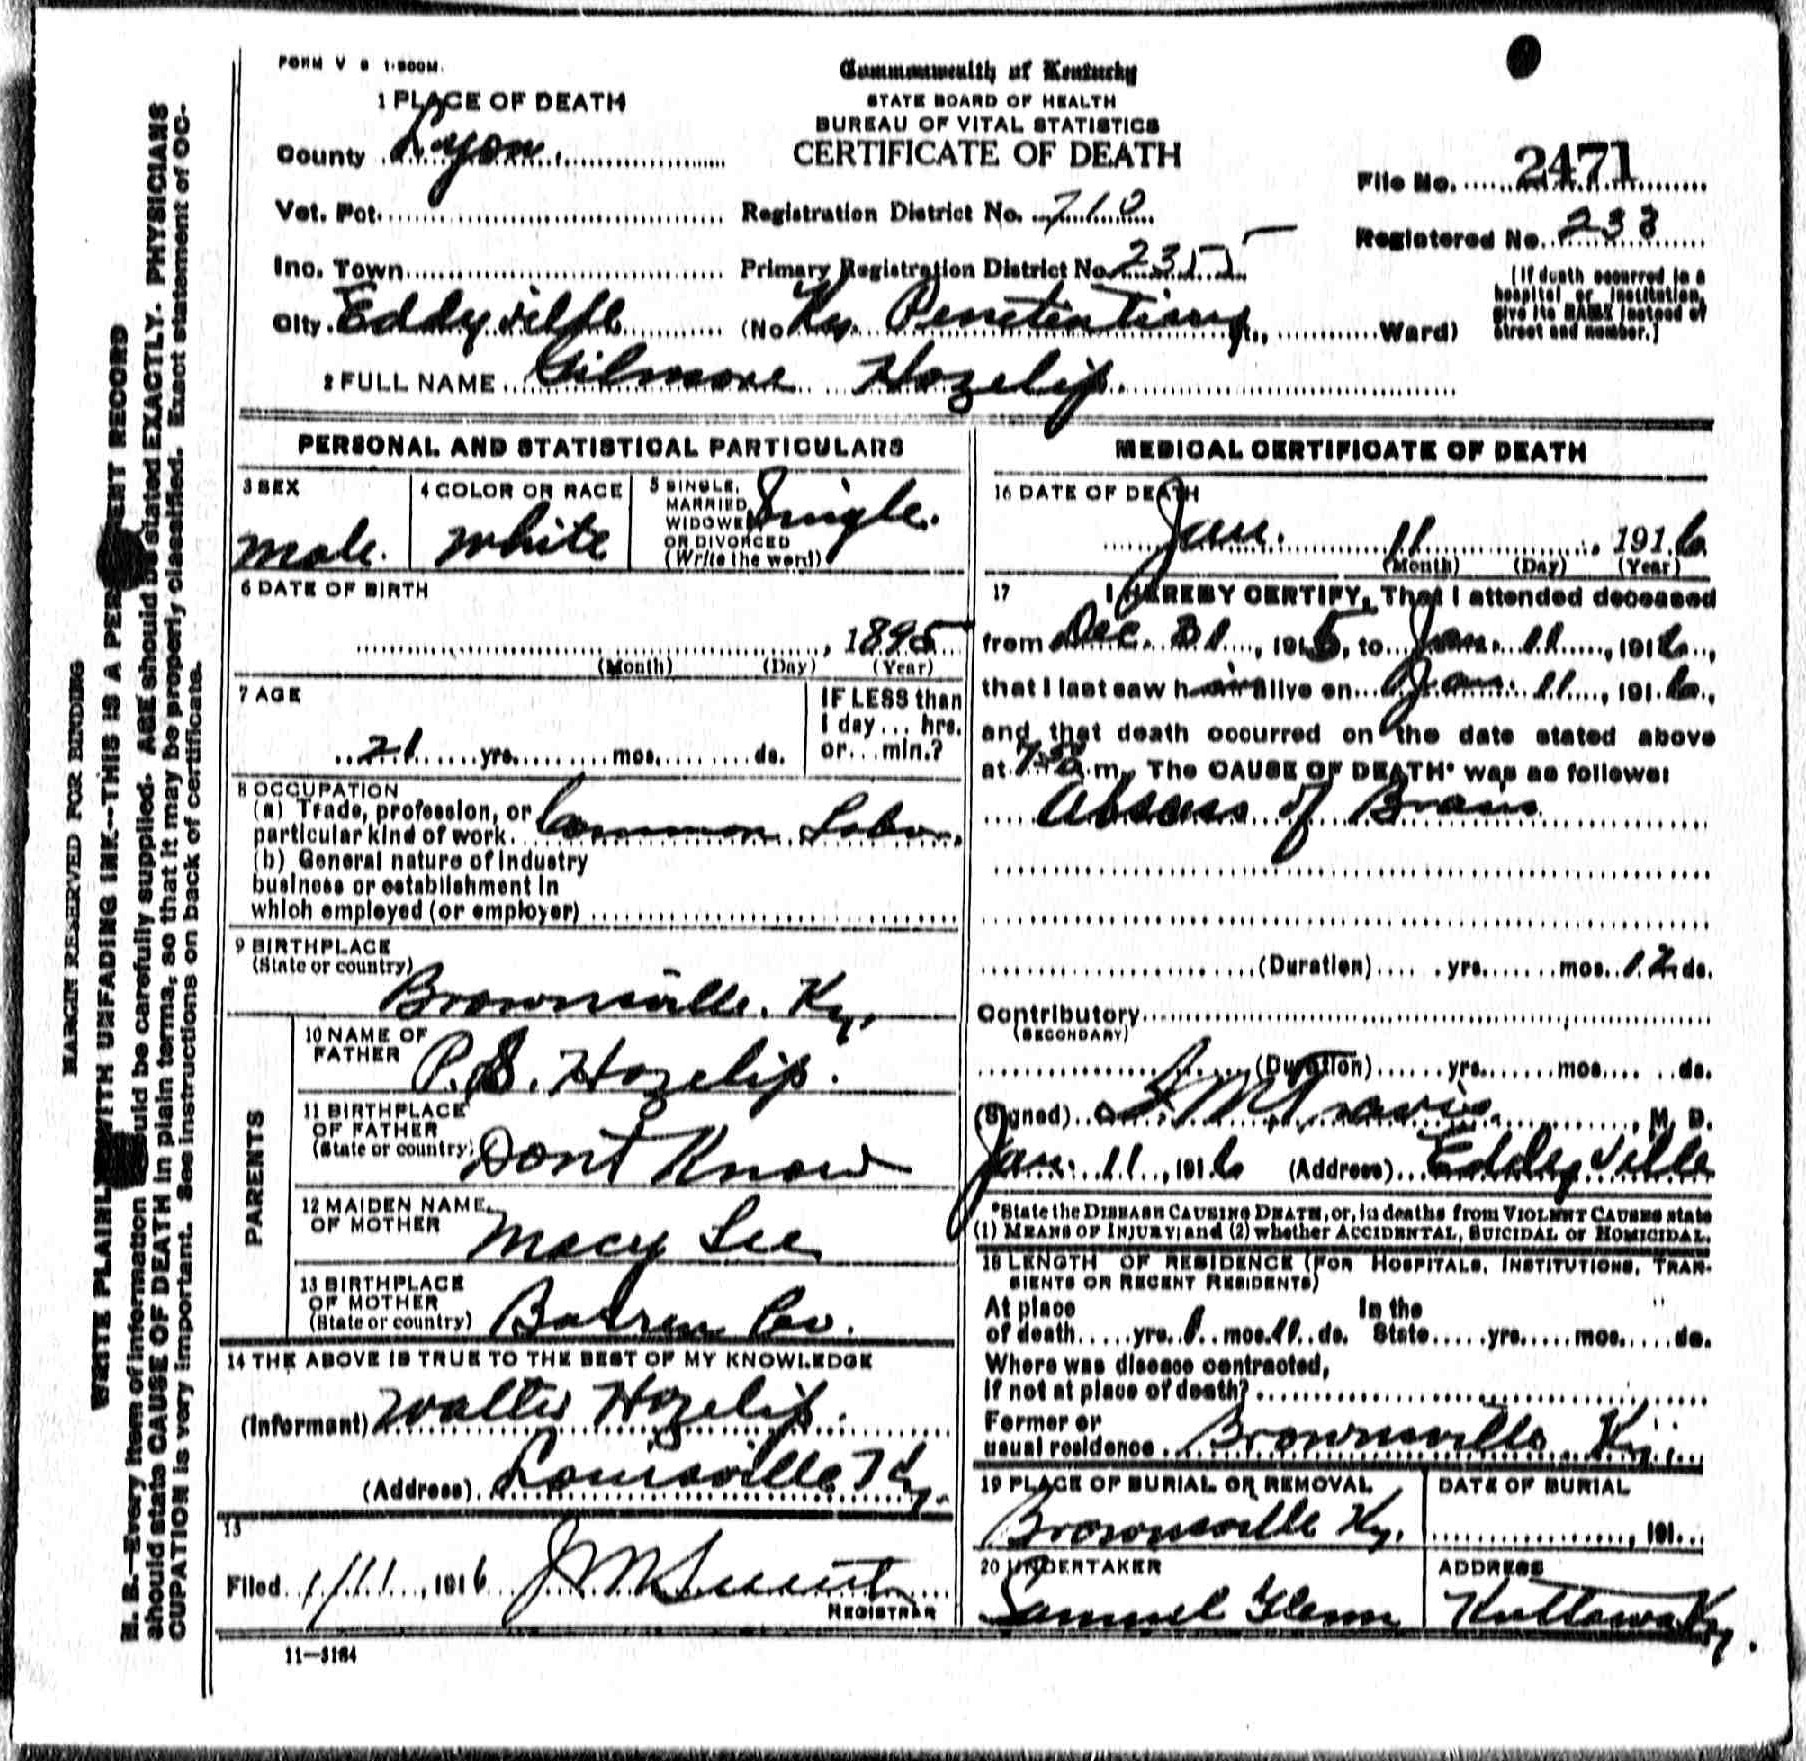 FORM V S 1-500M.
Commonwealth of Kentucky
STATE BOARD OF HEALTH
BUREAU OF VITAL STATISTICS
CERTIFICATE OF DEATH
1 PLACE OF DEATH
County Lyon
Vot. Pct.
Inc. Town
City Eddyville (No Ky. Penitentiary St., Ward)
Registration District No. 710
Primary Registration District No. 2355
File No. 2471
Registered No. 233
(If death occurred in a hospital or institution, give its NAME instead of street and number.)
2 FULL NAME Gilmore Hozelip.
PERSONAL AND STATISTICAL PARTICULARS
3 SEX
male.
4 COLOR OR RACE
white
5 SINGLE, MARRIED, WIDOWED OR DIVORCED (Write the word)
Single.
6 DATE OF BIRTH
, 1895
(Month) (Day) (Year)
7 AGE
21 yrs. mos. ds.
IF LESS than
1 day... hrs.
or... min.?
8 OCCUPATION
(a) Trade, profession, or
particular kind of work. Common Labor.
(b) General nature of industry
business or establishment in
which employed (or employer)
9 BIRTHPLACE
(State or country)
Brownsville. Ky.
PARENTS
10 NAME OF FATHER
P. S. Hozelip.
11 BIRTHPLACE OF FATHER (State or country)
Dont Know
12 MAIDEN NAME OF MOTHER
Macy Lee
13 BIRTHPLACE OF MOTHER (State or country)
Barren Co.
14 THE ABOVE IS TRUE TO THE BEST OF MY KNOWLEDGE
(Informant) Walter Hozelip.
(Address) Louisville Ky.
15
Filed 1/11, 1916
REGISTRAR
11-3184
MEDICAL CERTIFICATE OF DEATH
16 DATE OF DEATH
Jan. 11, 1916
(Month) (Day) (Year)
17 I HEREBY CERTIFY, That I attended deceased
from Dec. 31, 1915, to Jan. 11, 1916,
that I last saw him alive on Jan. 11, 1916,
and that death occurred on the date stated above
at m. The CAUSE OF DEATH* was as follows:
Abscess of Brain
(Duration) yrs. mos. 12 ds.
Contributory
(SECONDARY)
(Duration) yrs. mos. ds.
(Signed) Travis, M. D.
Jan. 11, 1916 (Address) Eddyville
*State the DISEASE CAUSING DEATH, or, in deaths from VIOLENT CAUSES state
(1) MEANS OF INJURY; and (2) whether ACCIDENTAL, SUICIDAL or HOMICIDAL.
18 LENGTH OF RESIDENCE (FOR HOSPITALS, INSTITUTIONS, TRANSIENTS OR RECENT RESIDENTS)
At place In the
of death yrs. mos. ds. State yrs. mos. ds.
Where was disease contracted,
If not at place of death?
Former or
usual residence Brownsville Ky.
19 PLACE OF BURIAL OR REMOVAL
Brownsville Ky.
DATE OF BURIAL
, 191
20 UNDERTAKER
Samuel Glenn
ADDRESS
Kuttawa Ky.
MARGIN RESERVED FOR BINDING
WRITE PLAINLY WITH UNFADING INK--THIS IS A PERMANENT RECORD
N. B.--Every item of information should be carefully supplied. AGE should be stated EXACTLY. PHYSICIANS
should state CAUSE OF DEATH in plain terms, so that it may be properly classified. Exact statement of OC-
CUPATION is very important. See instructions on back of certificate.